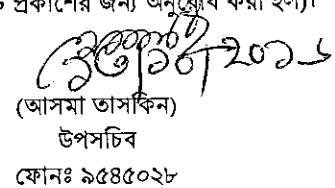 প্রকাশের জন্য অনুরোধ করা হল)।
২০১৬
(আসমা তাসকিন)
উপসচিব
ফোনঃ ৯৫৪৫০২৮